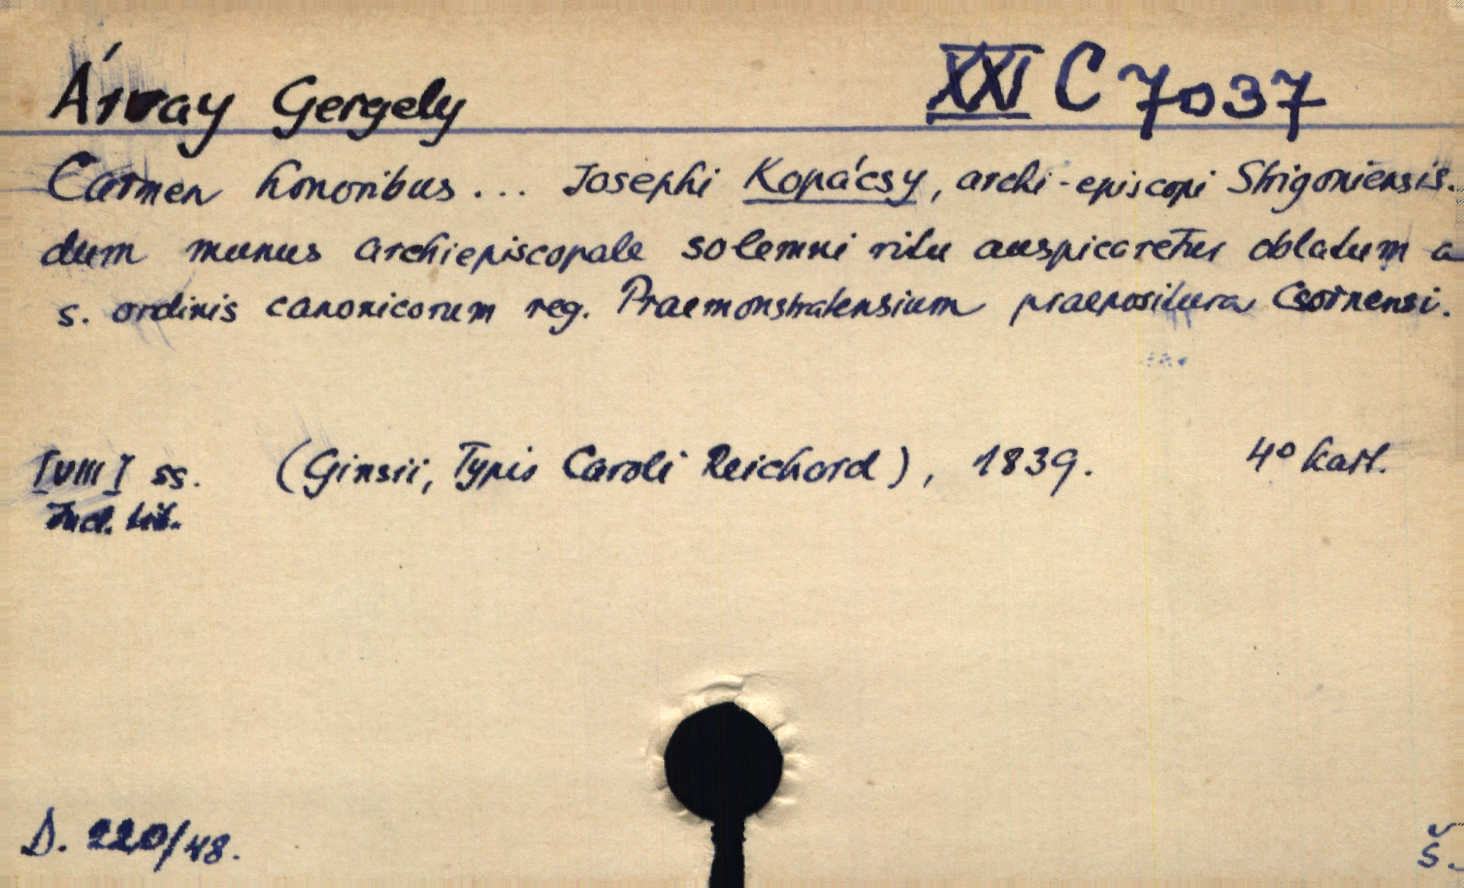 Árvay Gergely XXI C 7037
Carmen honoribus ... Josephi Kopácsy, archi-episcopi Strigoniensis.
dum munus archiepiscopale solemni ritu auspicaretur oblatum a
s. ordinis canonicorum reg. Praemonstratensium praepositura Csornensi.
[VIII] ss. (Ginsii, Typis Caroli Reichard), 1839. 4° kart.
Incl. tit.
D. 220/48.
Š.